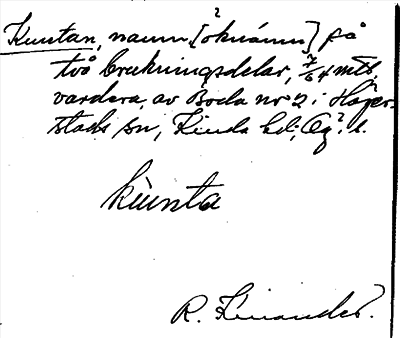 Kuntan, namn [öknamn?] på
två brukningsdelar, 7/64 mtl
vardera, av Boda nr 2 i Häger-
stads sn, Kinda hd, Ög. l.
kùnta
R. Kinander.